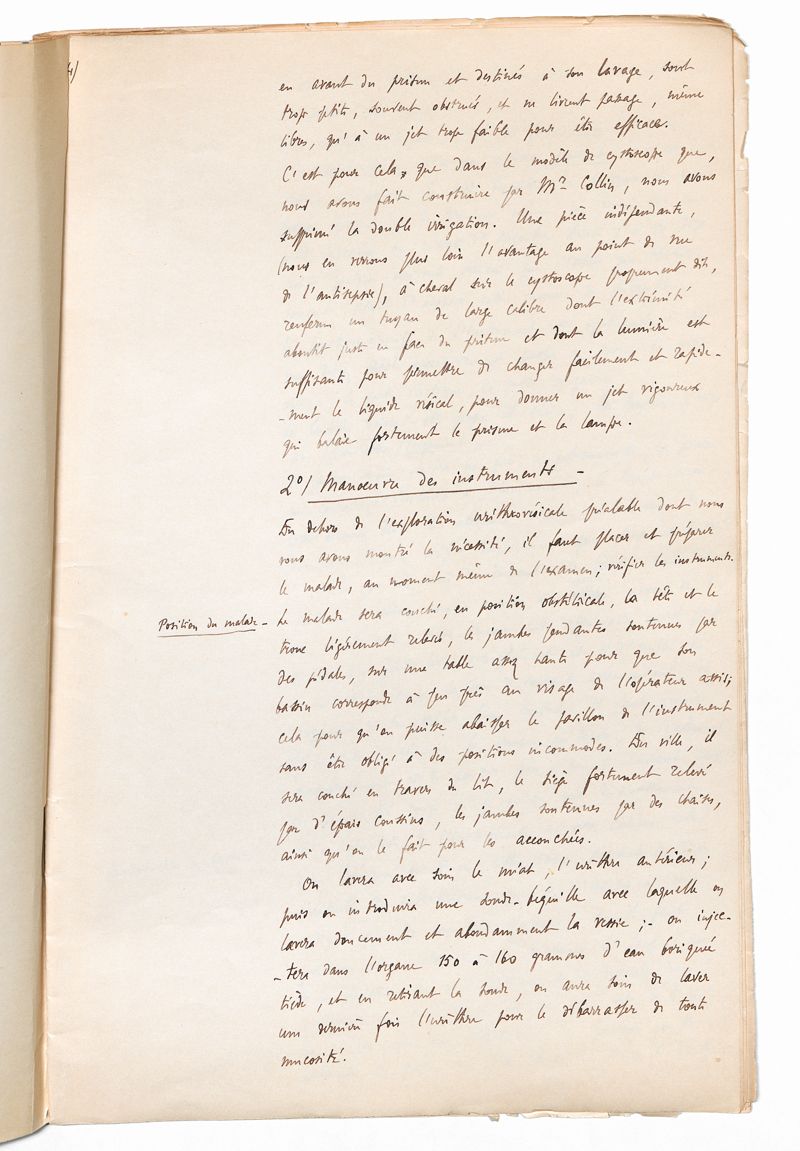 4)
en avant du prisme et destinés à son lavage, sont
trop petits, souvent obstrués, et ne livrent passage, même
libres, qu'à un jet trop faible pour être efficace.
C'est pour cela, que dans le modèle de cystoscope que,
nous avons fait construire par Mr Collin, nous avons
supprimé la double irrigation. Une pièce indépendante,
(nous en verrons plus loin l'avantage au point de vue
de l'antisepsie), à cheval sur le cystoscope proprement dit,
renferme un tuyau de large calibre dont l'extrémité
aboutit juste en face du prisme et dont la lumière est
suffisante pour permettre de changer facilement et rapide-
-ment le liquide vésical, pour donner un jet vigoureux
qui balaie fortement le prisme et la lampe.
2°/ Manoeuvre des instruments -
En dehors de l'exploration uréthrovésicale préalable dont nous
vous avons montré la nécessité, il faut placer et préparer
le malade, au moment même de l'examen; vérifier les instruments.
Position du malade - Le malade sera couché, en position obstétricale, la tête et le
tronc légèrement relevés, les jambes pendantes soutenues par
des pédales, sur une table assez haute pour que son
bassin corresponde à peu près au visage de l'opérateur assis;
cela pour qu'on puisse abaisser le pavillon de l'instrument
sans être obligé à des positions incommodes. En ville, il
sera couché en travers du lit, le siège fortement relevé
par d'épais coussins, les jambes soutenues par des chaises,
ainsi qu'on le fait pour les accouchées.
On lavera avec soin le méat, l'urèthre antérieur;
puis on introduira une sonde-béquille avec laquelle on
lavera doucement et abondamment la vessie; - on injec-
-tera dans l'organe 150 à 160 grammes d'eau boriquée
tiède, et en retirant la sonde, on aura soin de laver
une dernière fois l'urèthre pour le débarrasser de toute
mucosité.